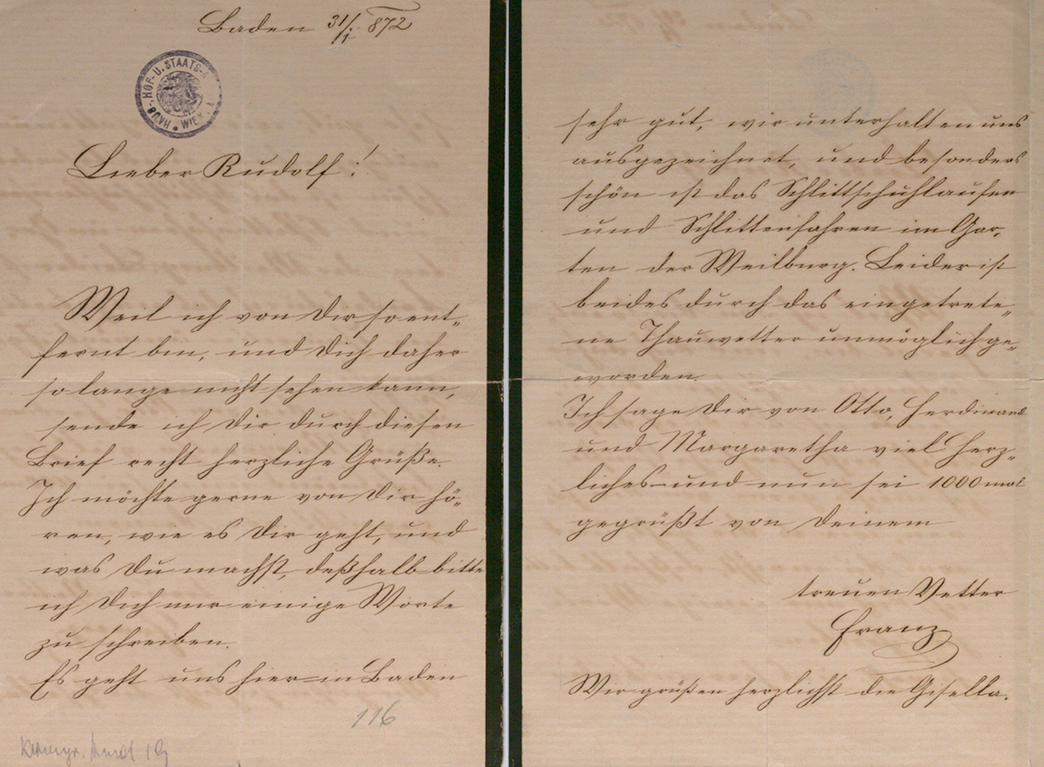 Baden 31/1. 872
HAUS- HOF- U. STAATS-A. WIEN
Lieber Rudolf!
Weil ich von Dir so ent=
fernt bin, und Dich daher
so lange nicht sehen kann,
sende ich Dir durch diesen
Brief recht herzliche Grüße.
Ich möchte gerne von Dir hö=
ren, wie es Dir geht, und
was Du machst, deßhalb bitte
ich Dich mir einige Worte
zu schreiben.
Es geht uns hier in Baden
116
sehr gut, wir unterhalten uns
ausgezeichnet, und besonders
schön ist das Schlittschuhlaufen
und Schlittenfahren im Gar=
ten der Weilburg. Leider ist
beides durch das eingetrete=
ne Thauwetter unmöglich ge=
worden.
Ich sage Dir von Otto, Ferdinand
und Margaretha viel Herz=
liches und nun sei 1000 mal
gegrüßt von Deinem
treuen Vetter
Franz
Wir grüßen herzlichst die Gisella.